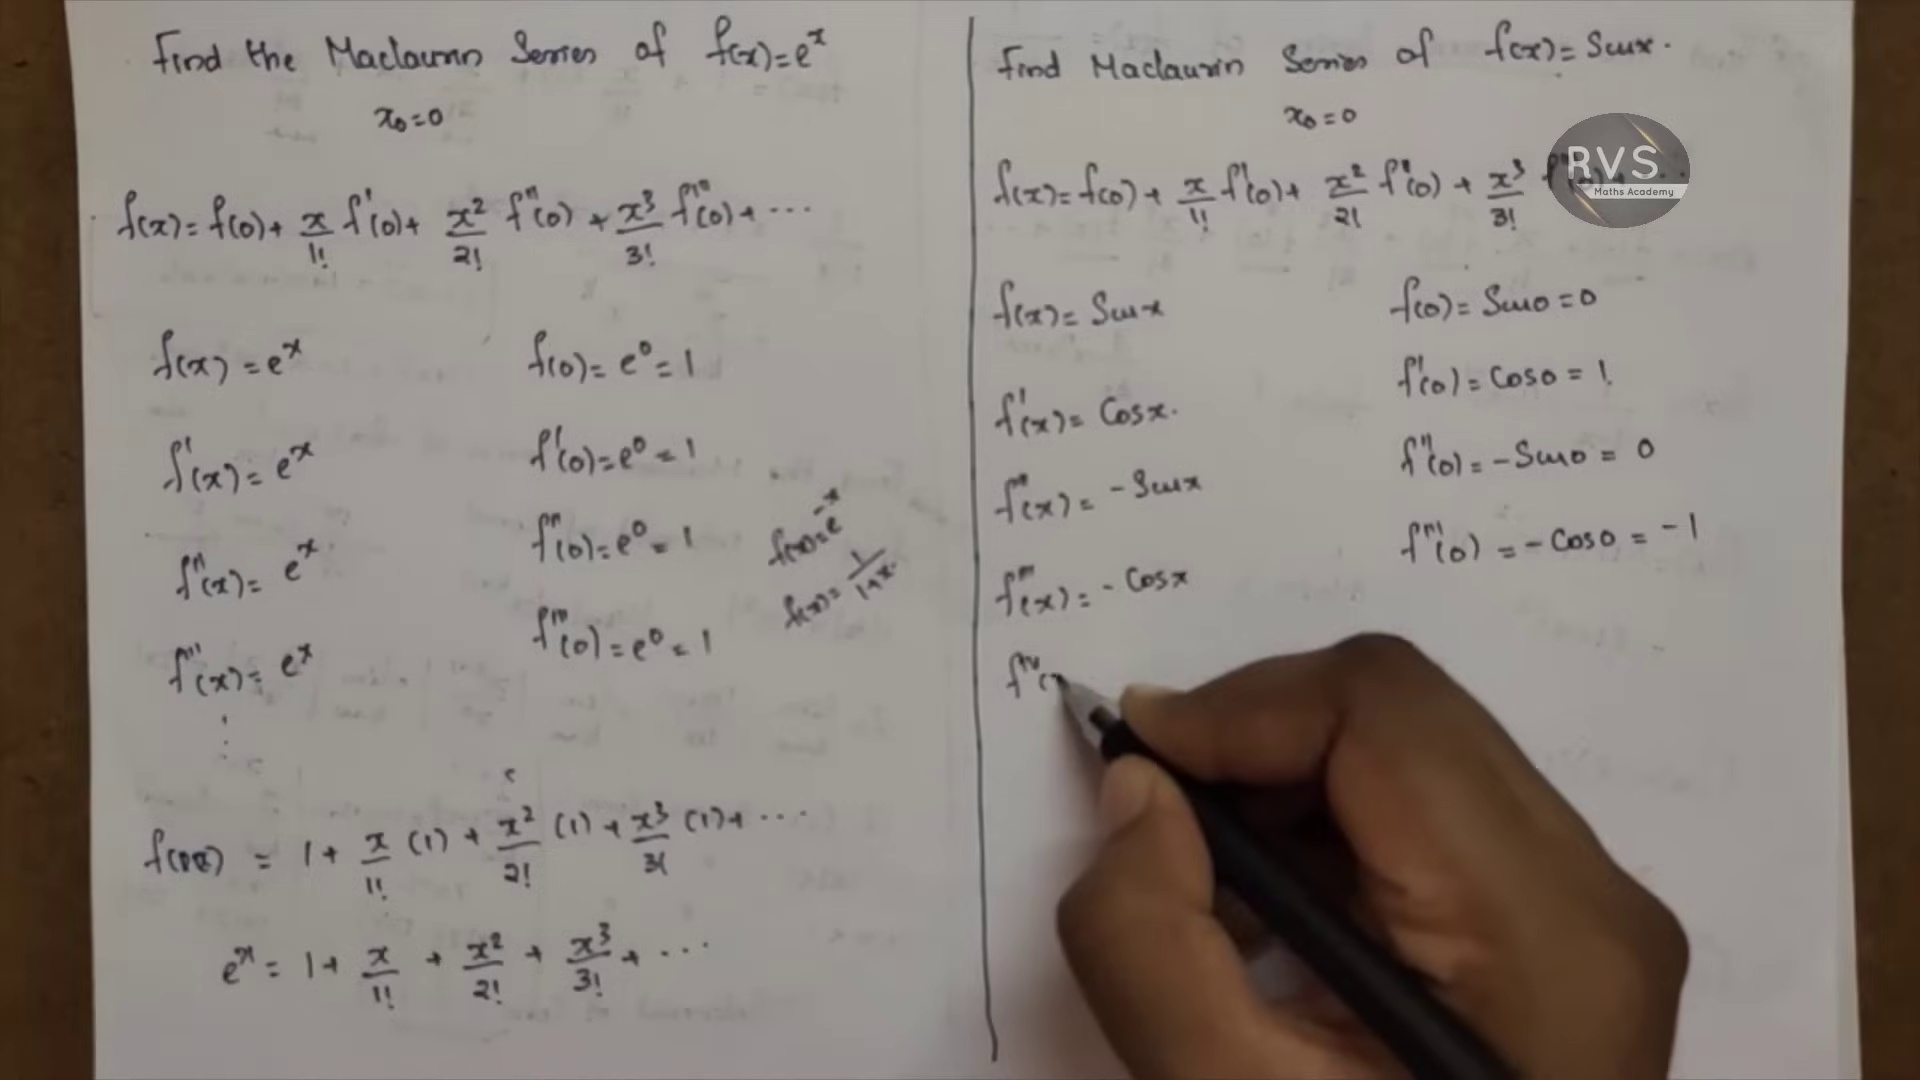 Find the Maclaurin Series of f(x)=eˣ
x₀=0
f(x)=f(0)+ x/1! f'(0)+ x²/2! f''(0) + x³/3! f'''(0)+ ...
f(x) = eˣ f(0)= e⁰ = 1
f'(x) = eˣ f'(0)=e⁰ = 1
f''(x) = eˣ f''(0)=e⁰ = 1
f'''(x) = eˣ f'''(0)=e⁰ = 1
f(x)=e⁻ˣ
f(x)= 1/1+x.
= 1+ x/1! (1) + x²/2! (1) + x³/3! (1)+ ...
eˣ = 1+ x/1! + x²/2! + x³/3! + ...
Find Maclaurin Series of f(x)= Sinx.
x₀=0
f(x)=f(0)+ x/1! f'(0)+ x²/2! f''(0) + x³/3!
f(x)= Sinx f(0)= Sin0 =0
f'(x)= Cosx. f'(0)= Cos0 = 1.
f''(x)= -Sinx f''(0)= -Sin0 = 0
f'''(x)= -Cosx f'''(0) = -Cos0 = -1
RVS
Maths Academy